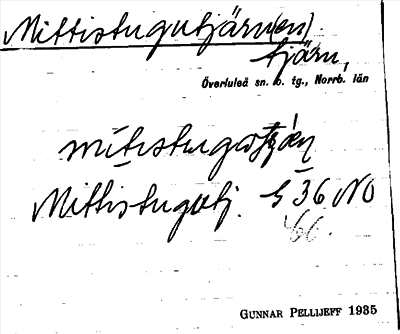 Mittistugutjärn(en).
tjärn,
Överluleå sn. o. tg., Norrb. län
mítistugotjǽn
Mittistugutj. G 36 NO
66.
GUNNAR PELLIJEFF 1935